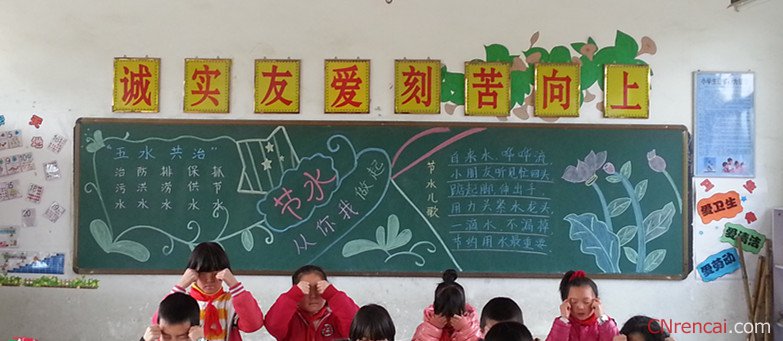 诚实友爱刻苦向上
"五水共治"
治 防 排 保 抓
污 洪 涝 供 节
水 水 水 水 水
节水
从你我做起
节水儿歌
自来水,哗哗流,
小朋友听见忙回头
踮起脚,伸出手,
用力关紧水龙头,
一滴水,不漏掉
节约用水最重要
爱卫生
爱清洁
爱劳动
CNrencai.com